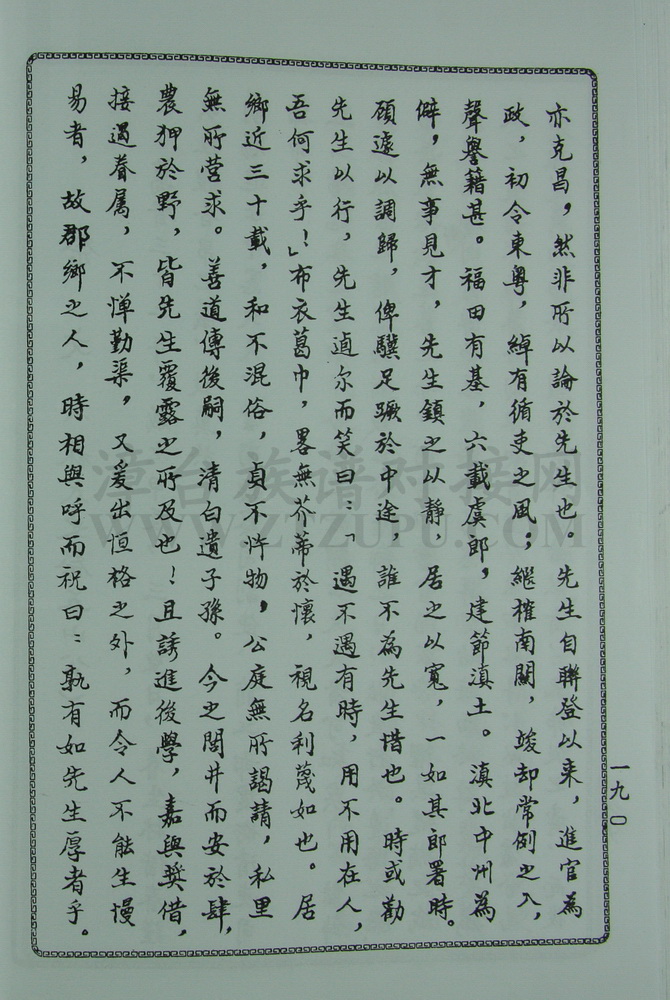 亦克昌，然非所以論於先生也。先生自聯登以来，進官為
政，初令東粵，綽有循吏之風；繼榷南關，竣却常例之入，
聲譽籍甚。福田有基，六載虞郎，建節滇土。滇北中州為
僻，無事見才，先生鎮之以静，居之以寬，一如其郎署時。
碩遠以調歸，俾驥足蹶於中途，誰不為先生惜也。時或勸
先生以行，先生逌尔而笑曰：「遇不遇有時，用不用在人，
吾何求乎！」布衣葛巾，畧無芥蒂於懷，視名利蔑如也。居
鄉近三十載，和不混俗，貞不忤物，公庭無所謁請，私里
無所營求。善道傳後嗣，清白遺子孫。今之閭井而安於肆，
農狎於野，皆先生覆露之所及也！且誘進後學，嘉與獎借，
接遇眷属，不憚勤渠，又爰出恒格之外，而令人不能生慢
易者，故郡鄉之人，時相與呼而祝曰：孰有如先生厚者乎。
一九〇
漳台族谱对接网
WWW.ZTZUPU.COM